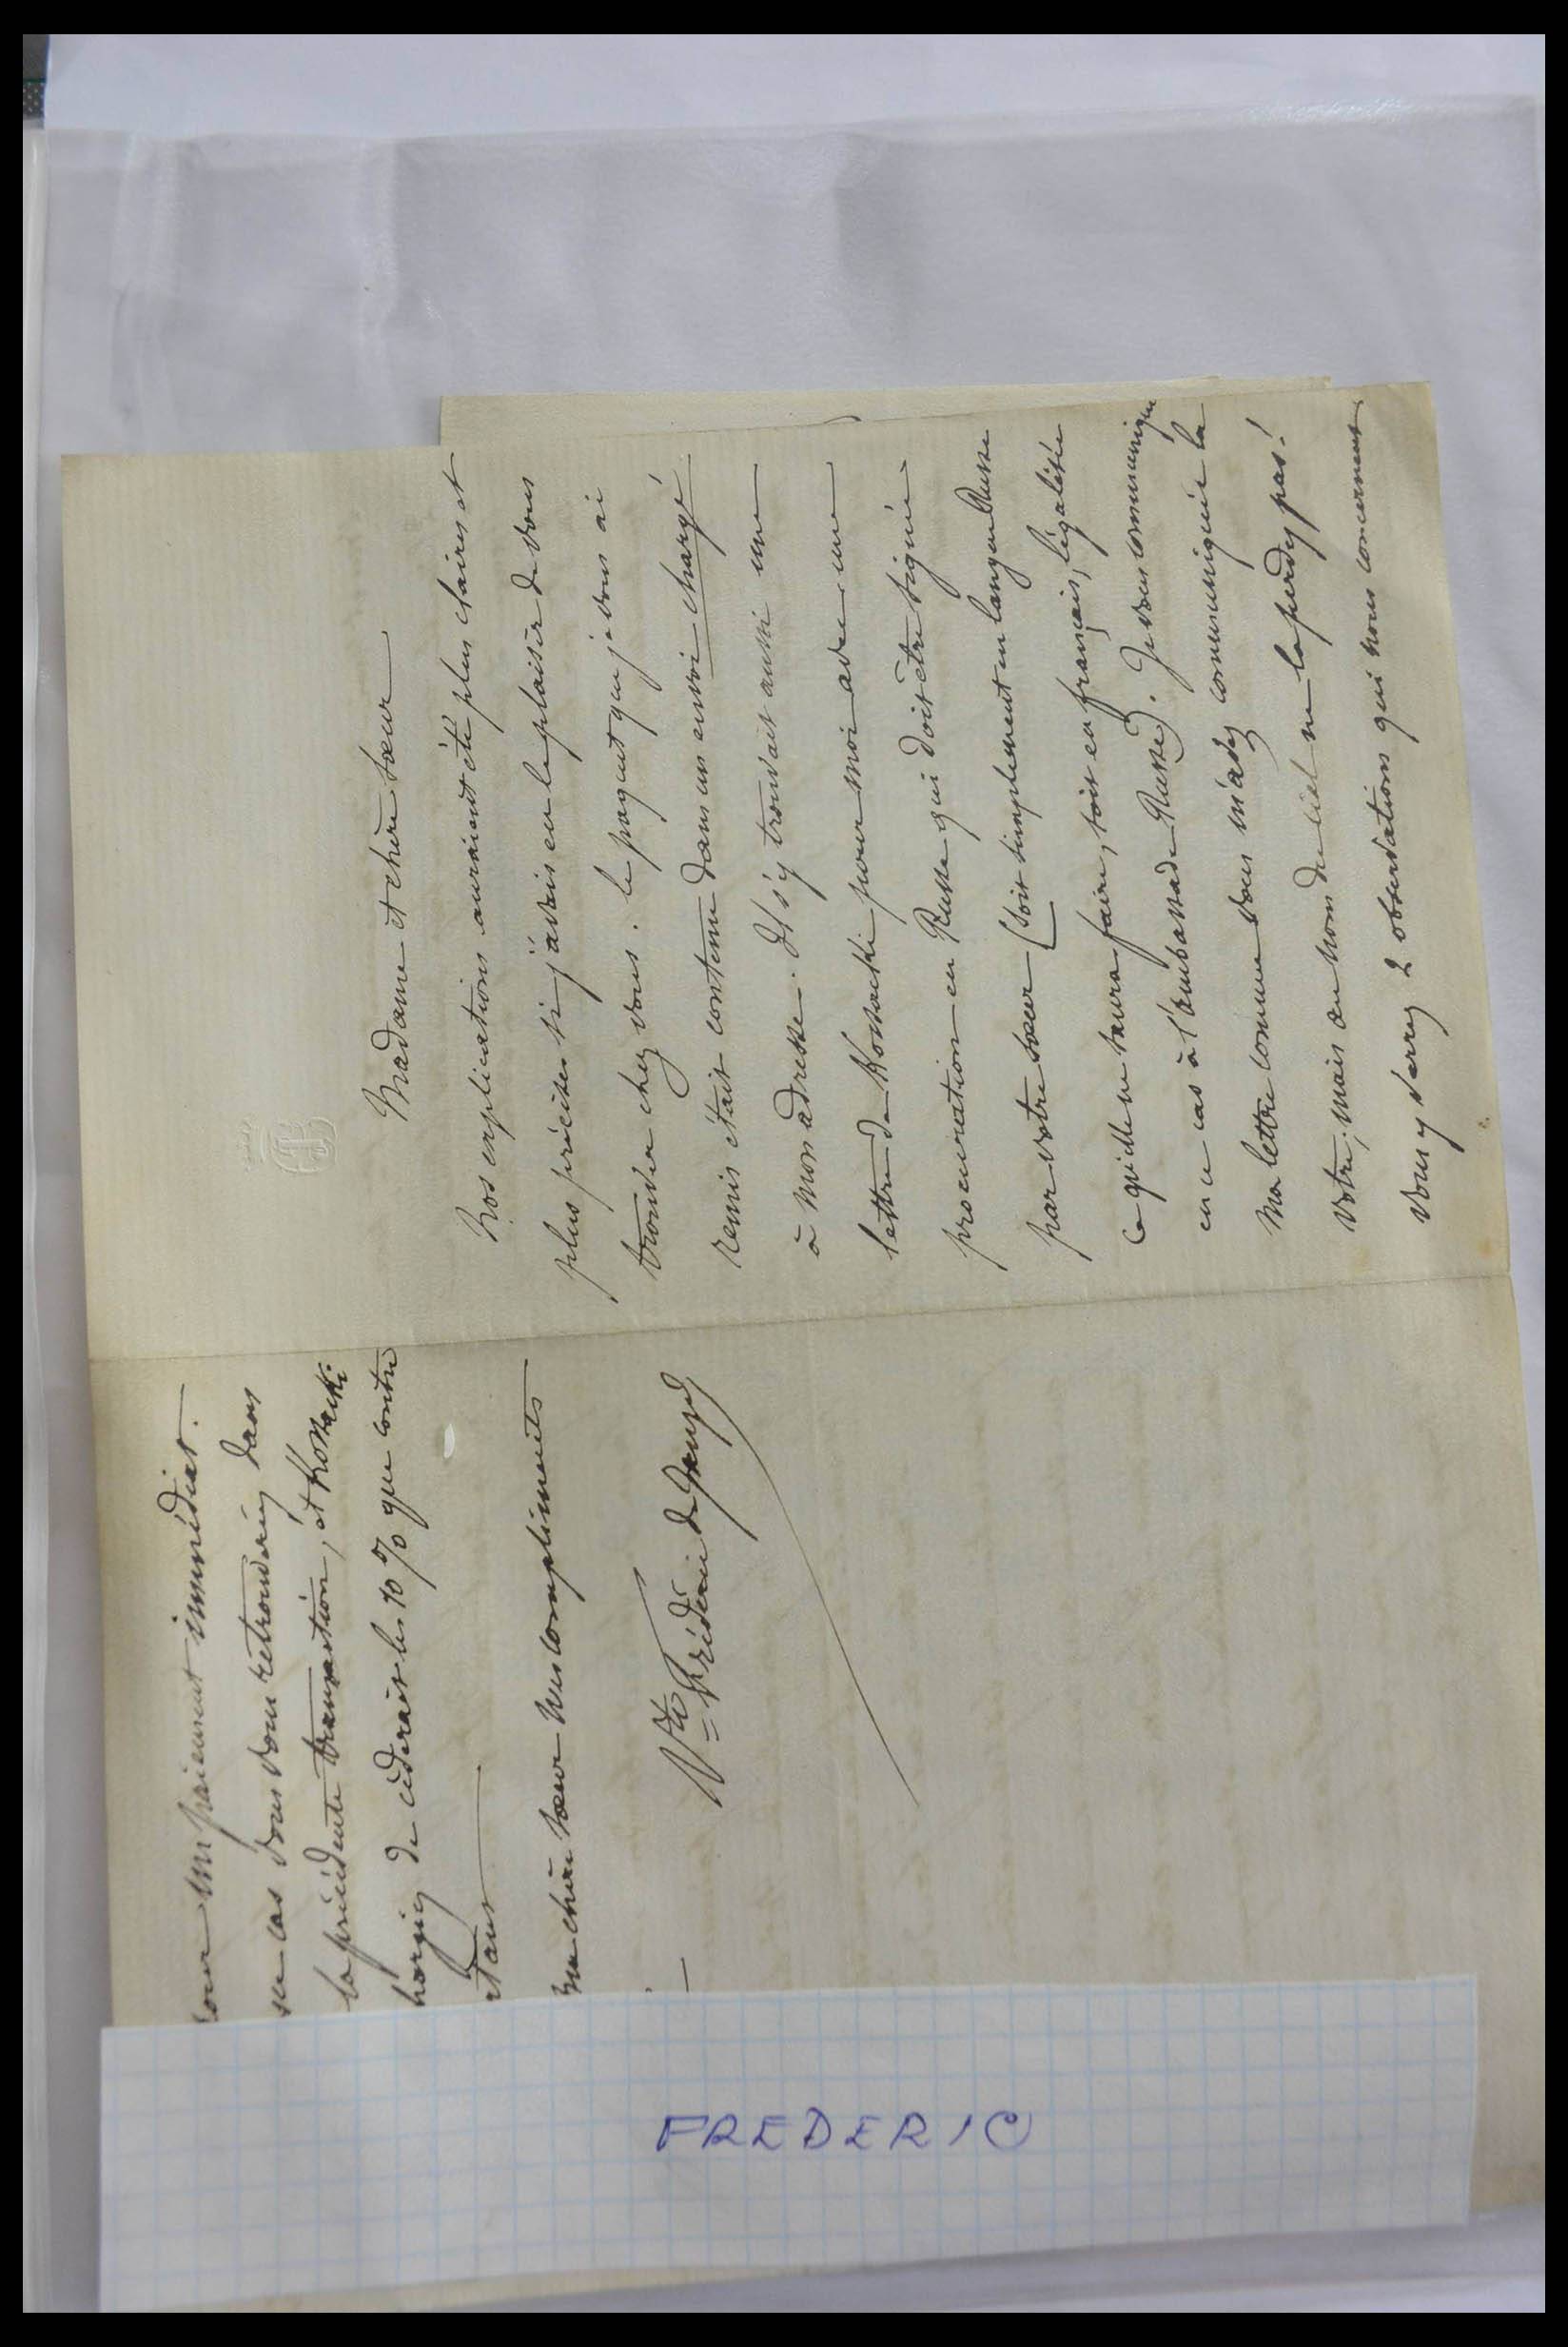 Madame et chère sœur
Nos explications auraient été plus claires et
plus précises si j'avais eu le plaisir de vous
trouver chez vous. le paquet que je vous ai
remis était contenu dans un envoi chargé
à mon adresse. Il s'y trouvait aussi une
lettre de Kossacki pour moi avec une
procuration en Russe qui doit être signée
par votre sœur (soit simplement en langue Russe
ce qu'elle ne saura faire, soit en français, légalisée
en ce cas à l'ambassade Russe). Je vous communique
ma lettre comme vous m'avez communiqué la
votre; mais au nom du ciel ne la perdez pas!
vous y verrez 2 observations qui nous concernent
un paiement immédiat.
cas vous vous retrouveriez dans
la précédente transaction, et Kossacki
de céderait les 10% que contre
ma chère sœur mes compliments
Vte Frédéric de
FREDERIC